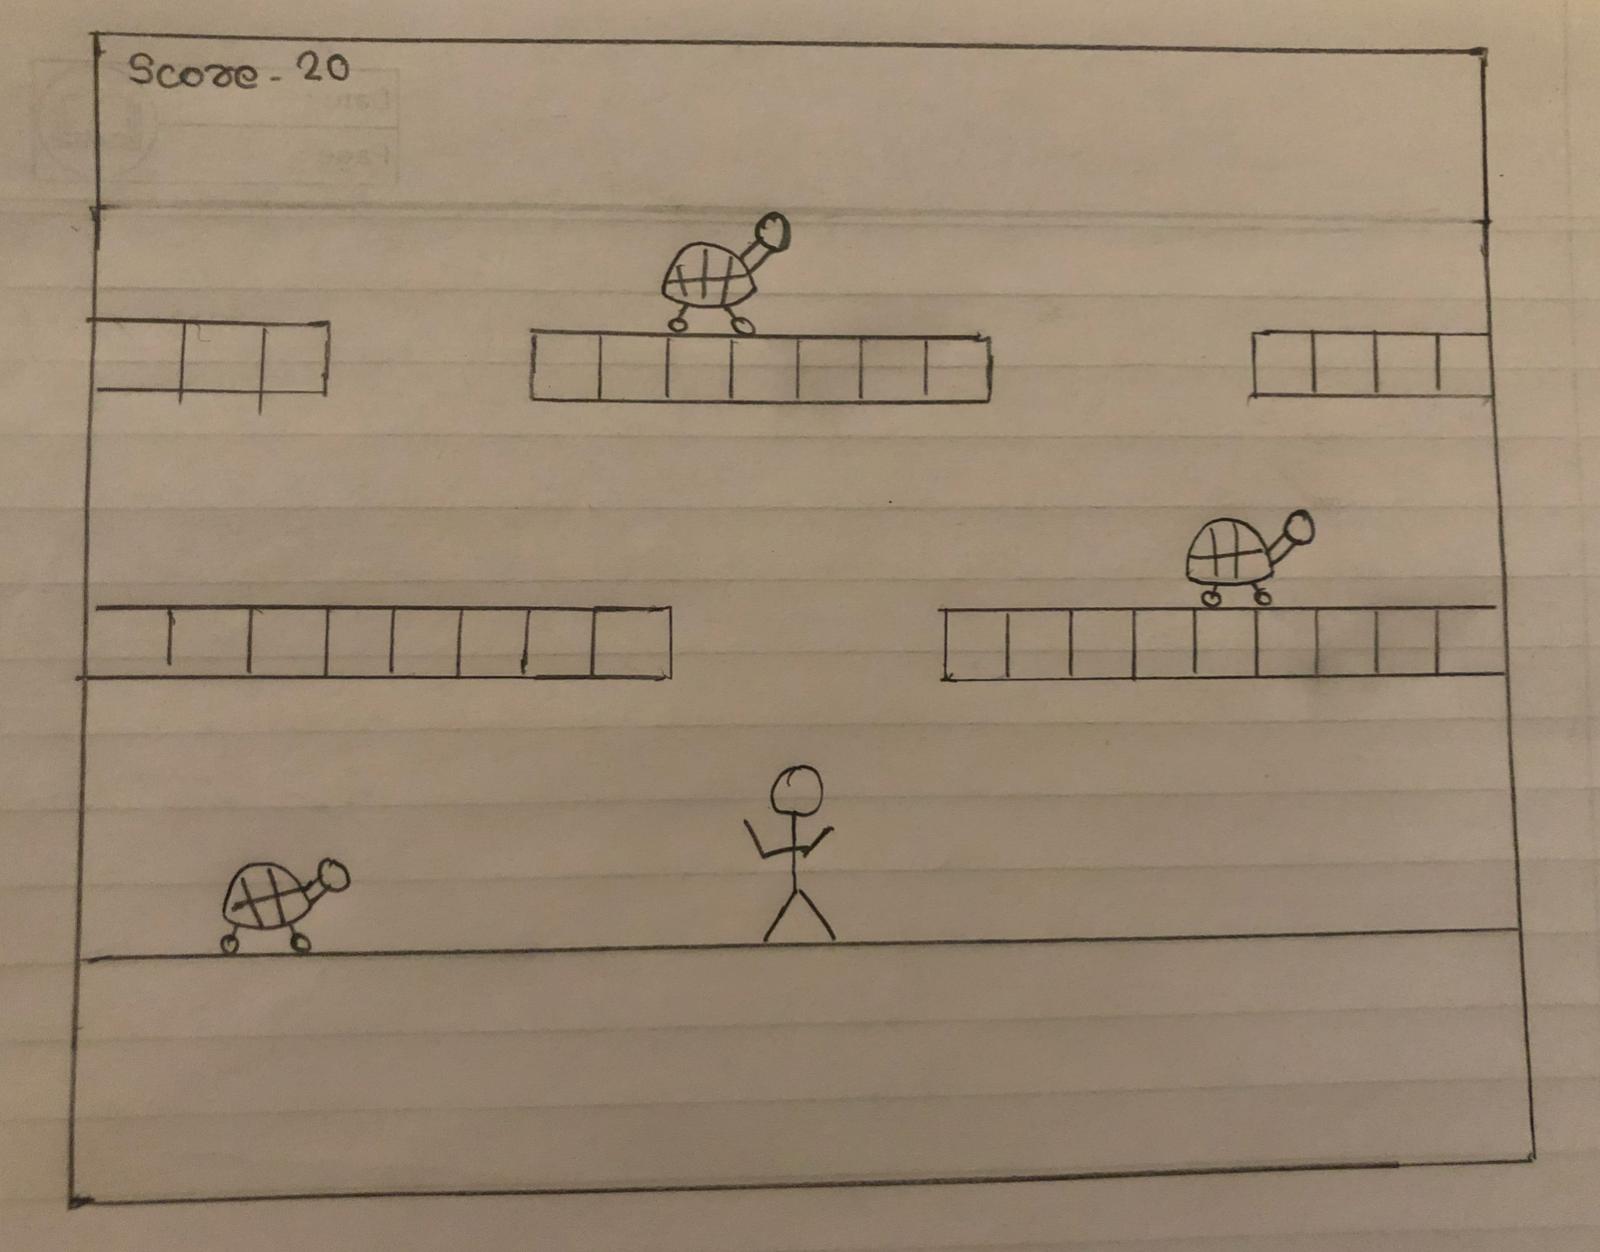 Score - 20